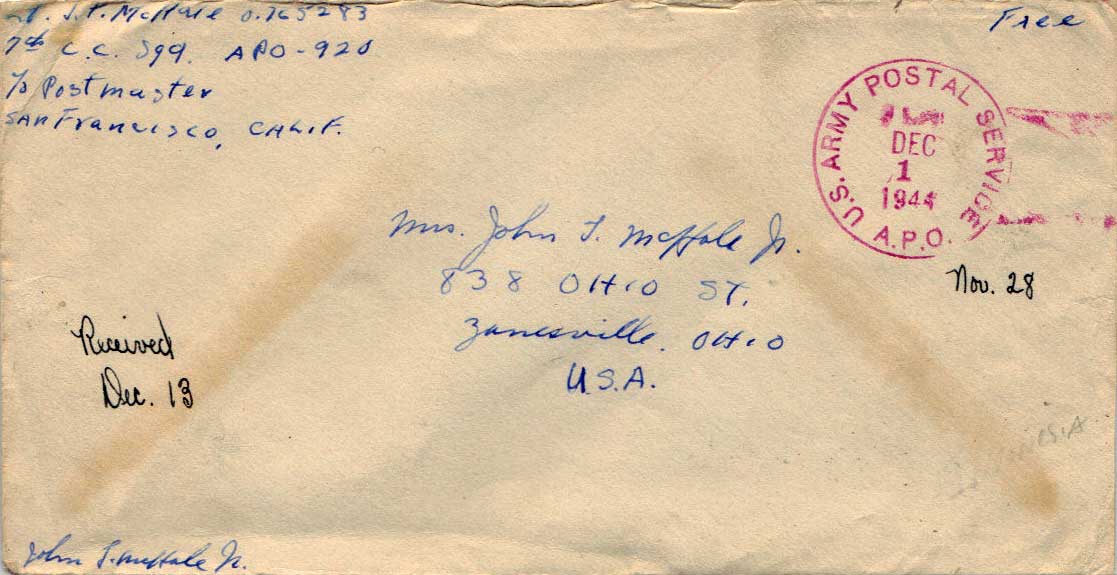 Lt. J.F. McHale O.765283
7th C.C. Sqq. APO-920
℅ Postmaster
San Francisco, CALIF.
Free
U.S. ARMY POSTAL SERVICE
DEC
1
1944
A.P.O.
Mrs. John F. McHale Jr.
838 OHIO ST.
Zanesville. OHIO
U.S.A.
Nov. 28
Received
Dec. 13
John F. McHale Jr.